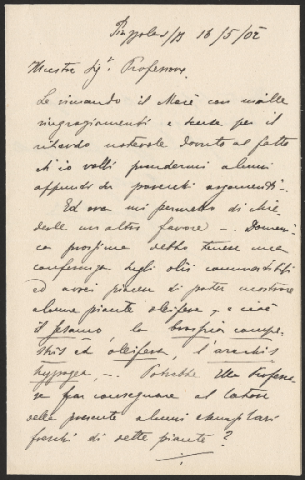 Puzzolas/B 16/5/02
Illustre Sig.r Professore,
Le rimando il Macè con mille
ringraziamenti e scuse per il
ritardo notevole dovuto al fatto
ch'io volli prendermi alcuni
appunti da parecchi argomenti.
Ed ora mi permetto di chie
derle un altro favore -. Domeni
ca prossima debbo tenere una
conferenza sugli olii commestibili
ed avrei piacere di poter mostrare
alcune piante oleifere, e cioè
il sesamo, la brassica campe
stris ed oleifera, l'arachis
hypogea, -. Potrebbe Ella Professo
re far consegnare al latore
della presente alcuni esemplari
freschi di dette piante?